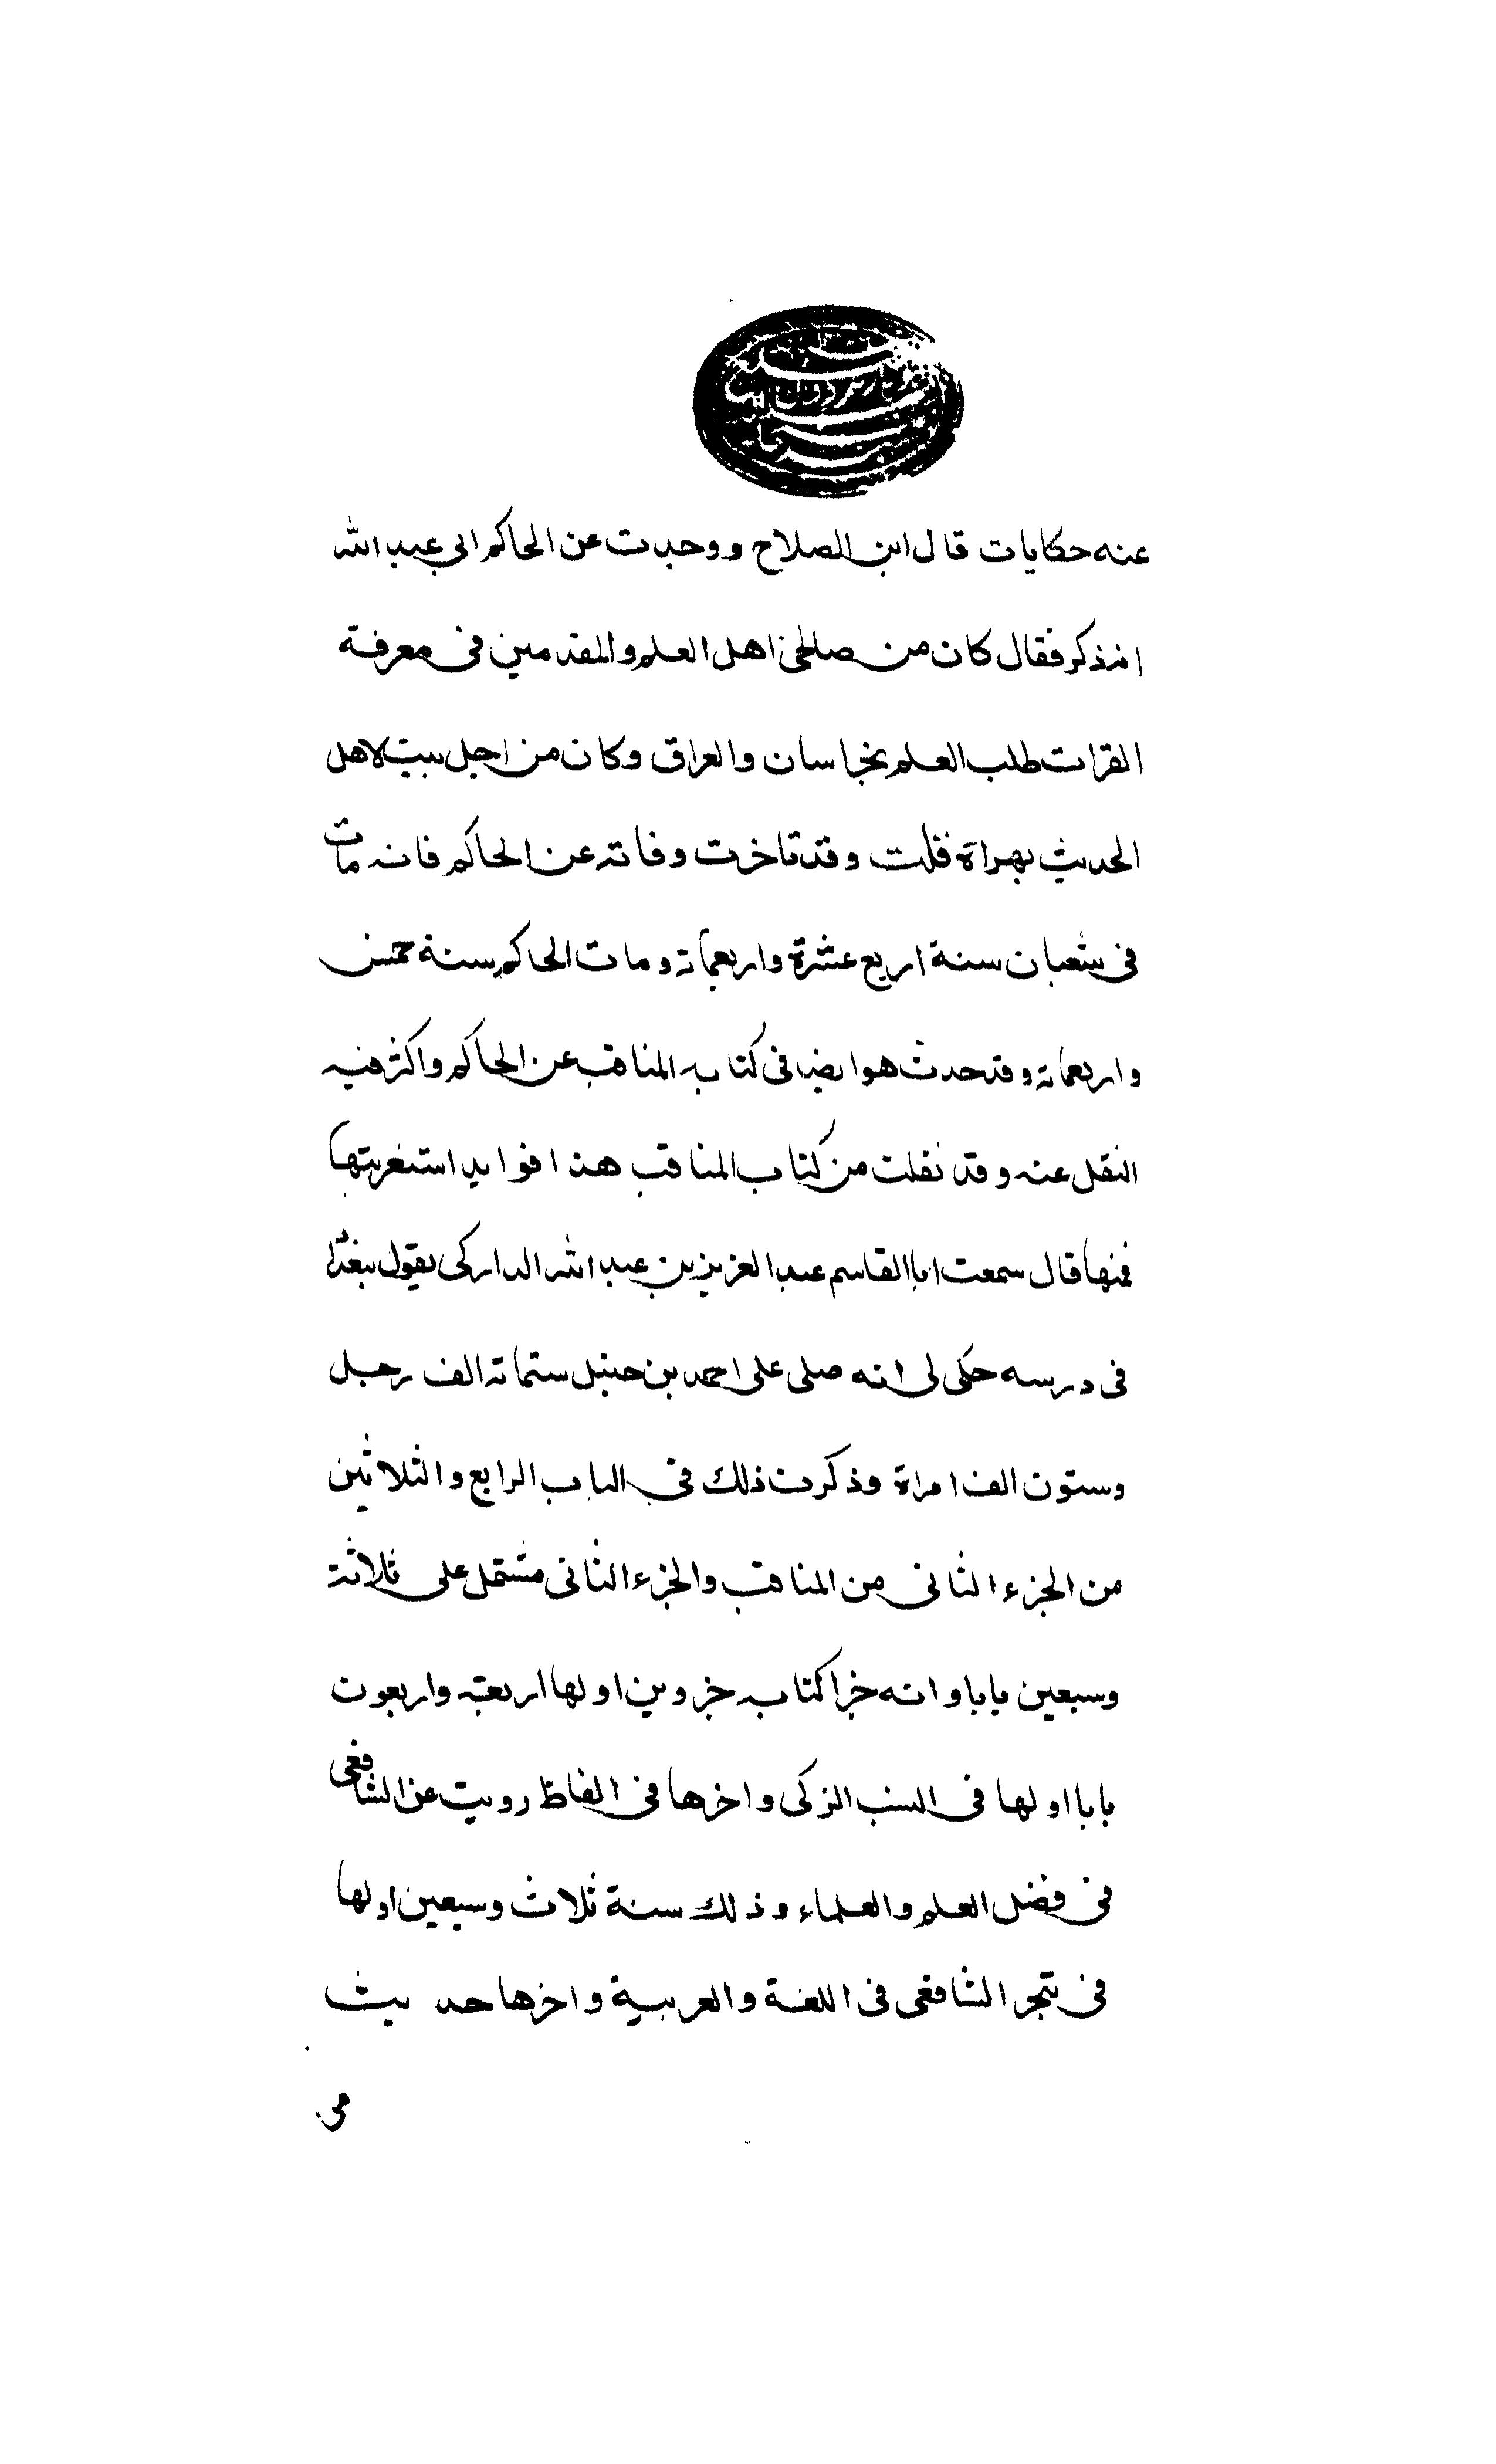 عنه حكايات قال ابن الصلاح ووجدت عن الحاكم ابي عبد الله
انه ذكر فقال كان من صالحى اهل العلم والمقدمين فى معرفة
القرات طلب العلم بخراسان والعراق وكان من اجل بيت لاهل
الحديث بهراة قلت وقد تاخرت وفاته عن الحاكم فانه مات
فى شعبان سنة اربع عشرة واربعماته ومات الحاكم سنة خمس
واربعماته وقد حدث هو ايضا فى كتابه المناقب عن الحاكم واكثر فيه
النقل عنه وقد نقلت من كتاب المناقب هذا فوايد استغربتها
فمنها قال سمعت ابا القاسم عبد العزيز بن عبد الله الداركى يقول ببغداد
فى درسه حكى لى انه صلى على احمد بن حنبل ستماته الف رجل
وستون الف امراة وذكرت ذلك فى الباب الرابع والثلاثين
من الجزء الثانى من المناقب والجزء الثانى مشتمل على ثلاثة
وسبعين بابا وانه جزا كتابه جزوين اولها اربعة واربعون
بابا اولها فى النسب الزكى واخرها فى الفاظ رويت عن الشافعى
فى فضل العلم والعلماء وذلك سنة ثلاث وسبعين اولها
فى تبحر الشافعى فى اللغة والعربية واخرها حديث